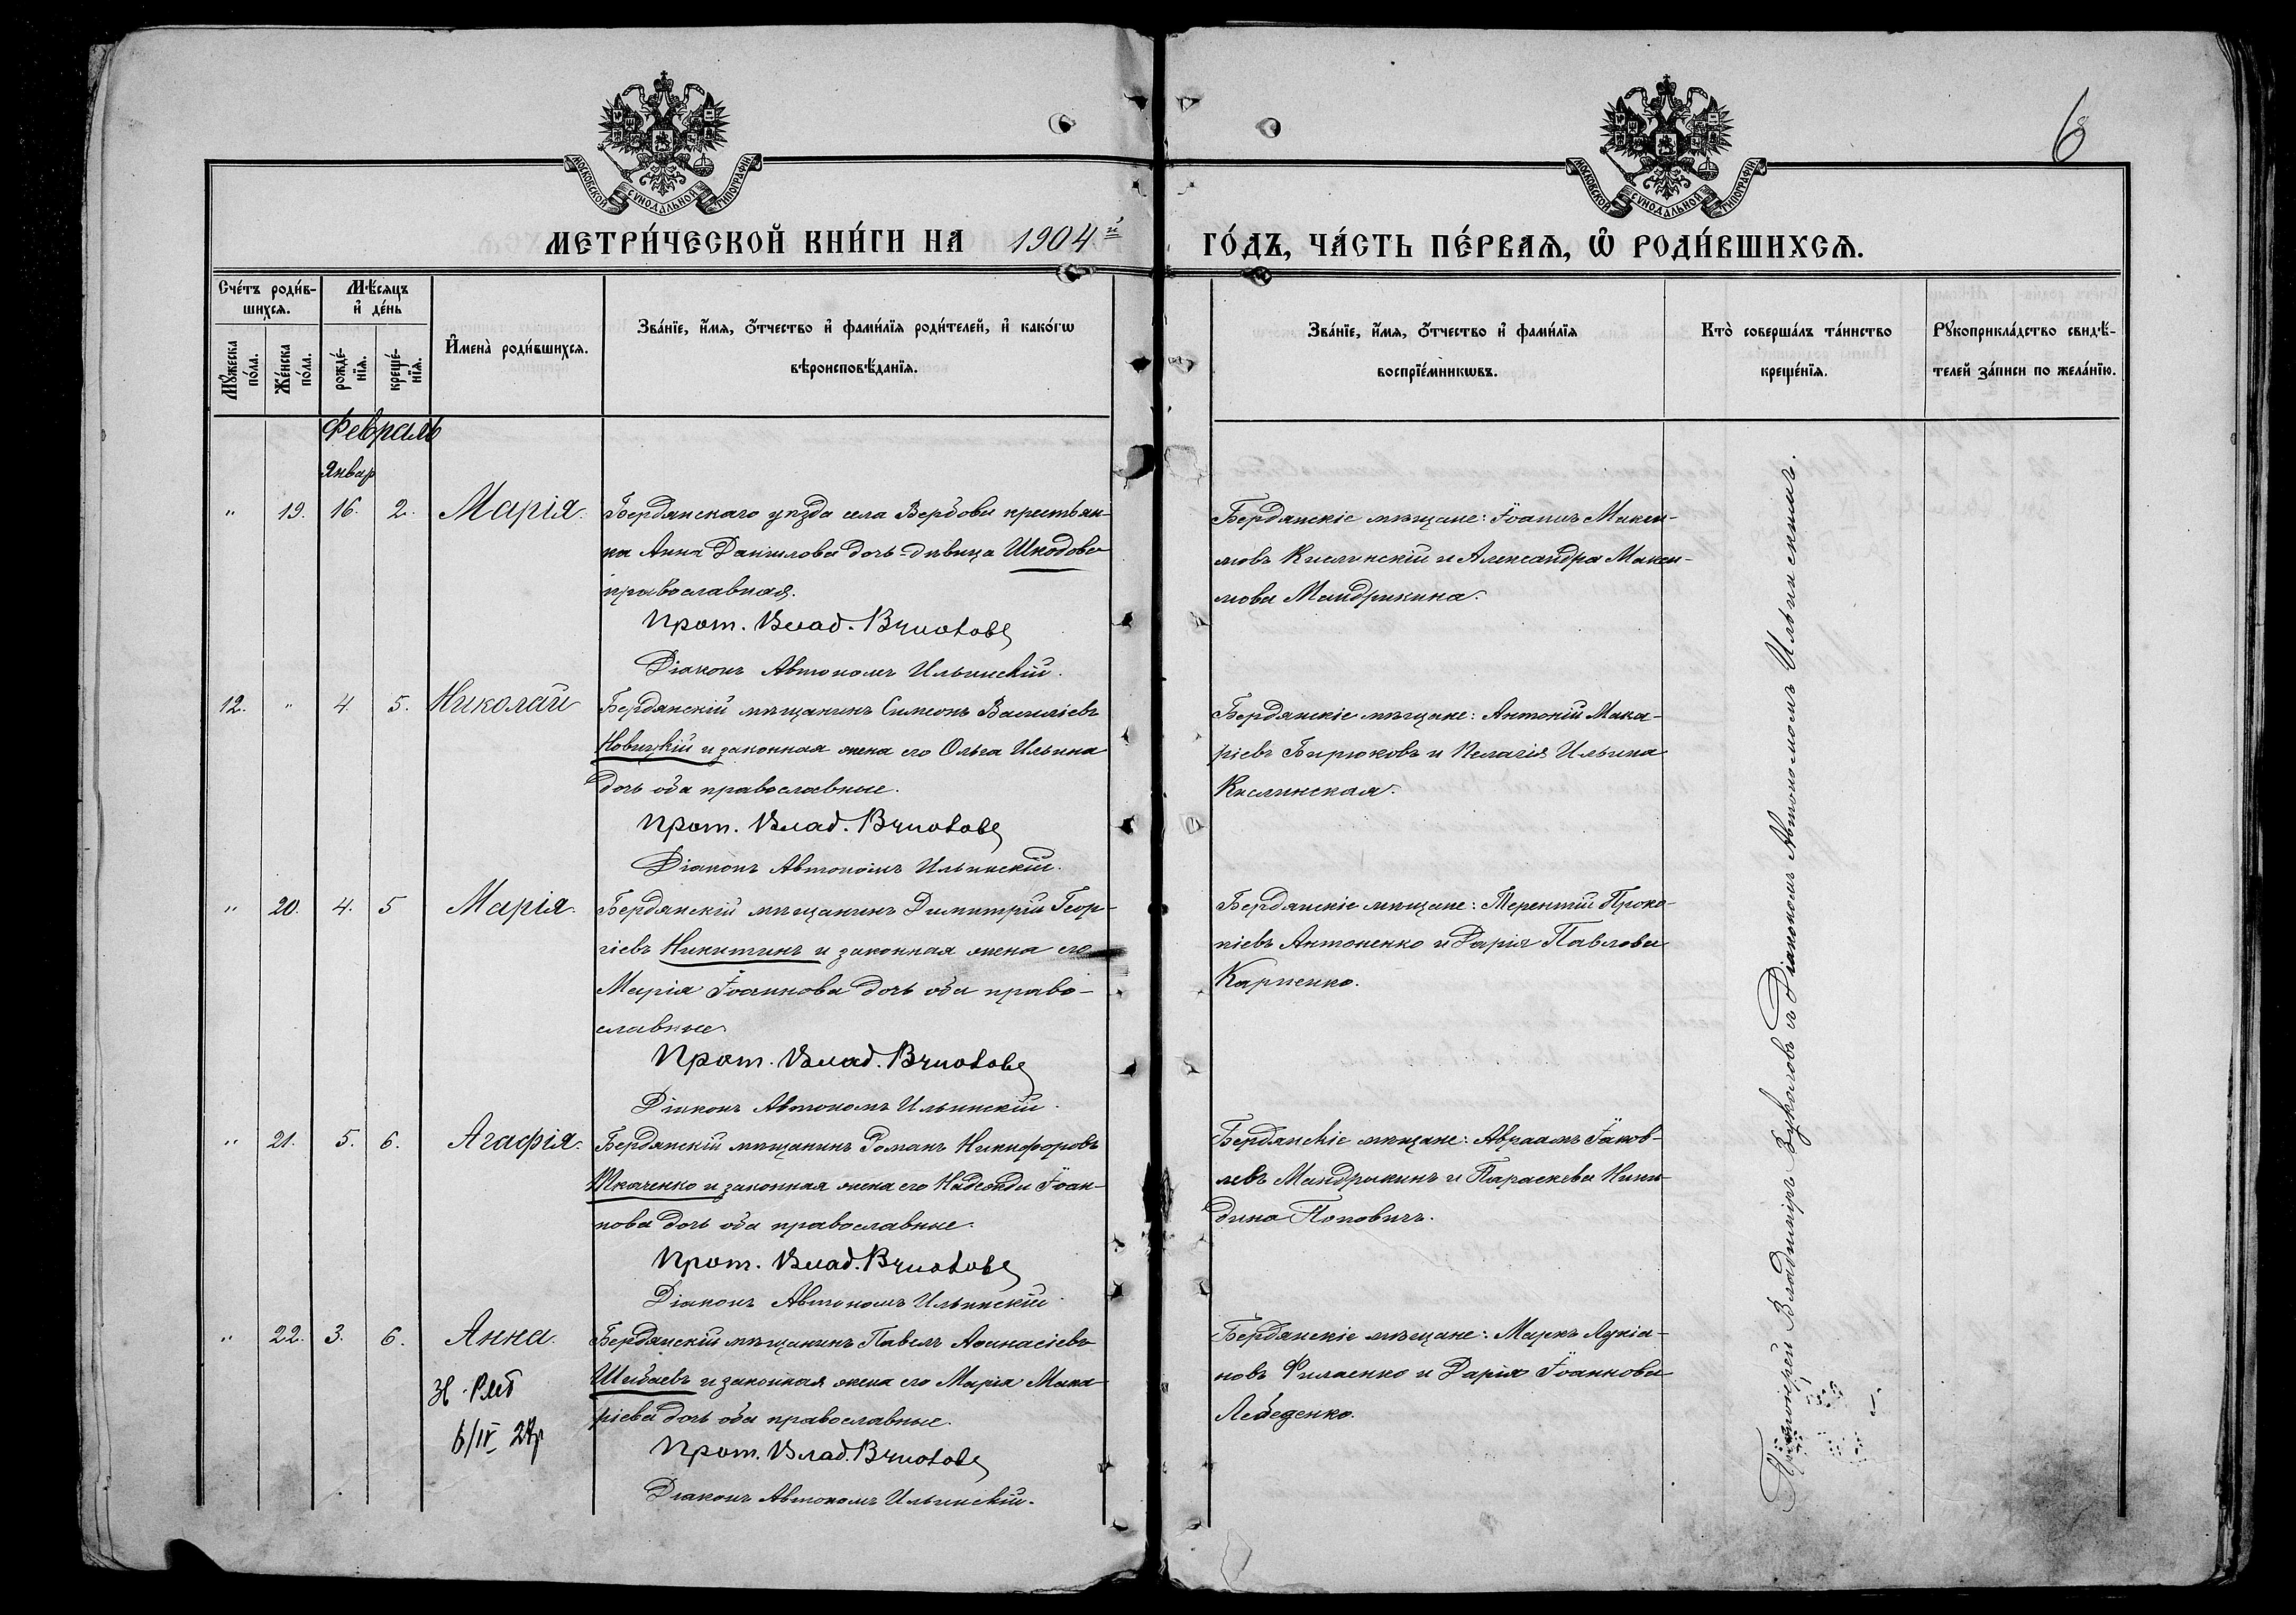 6
МОСКОВСКОЙ СУНОДАЛЬНОЙ ТИПОГРАФІИ
МОСКОВСКОЙ СУНОДАЛЬНОЙ ТИПОГРАФІИ
МЕТРИ́ЧЕСКОЙ КНИ́ГИ НА 1904й
ГО́ДЪ, ЧА́СТЬ ПЕ́РВАЯ, Ѡ РОДИ́ВШИХСЯ.
Сче́тъ роди́в-
шихся.
Мѣ́сяцъ
и де́нь
Мꙋ́жеска
по́ла.
Же́нска
по́ла.
рожде́-
нїя.
креще́-
нїя.
И҆мена̀ роди́вшихся.
Зва́нїе, и҆́мя, ѻ҆́тчество и҆ фами́лїя роди́телей, и҆ како́гѡ
вѣроисповѣ́данїя.
Зва́нїе, и҆́мя, ѻ҆́тчество и҆ фами́лїя
воспрїе́мникѡвъ.
Кто̀ соверша́лъ та́инство
креще́нїя.
Рꙋкоприкла́дство свидѣ́-
телей за́писи по жела́нїю.
Февраль
Январ
" 19. 16. 2. Марія.
Бердянскаго уѣзда села Вербовы крестьян-
ка Анна Даніилова дочь-дѣвица Шкодова
православная.
Прот. Влад. Вуколовъ
Діаконъ Автономъ Ильинскій.
Бердянскіе мѣщане: Іоаннъ Макси-
мовъ Кислинскій и Александра Макси-
мова Мандрикина.
12. " 4. 5. Николай
Бердянскій мѣщанинъ Симеонъ Василіевъ
Новицкій и законная жена его Ольга Ильина
дочь оба православные.
Прот. Влад. Вуколовъ
Діаконъ Автономъ Ильинскій.
Бердянскіе мѣщане: Антоній Мака-
ріевъ Бирюковъ и Пелагія Ильина
Кислинская.
" 20. 4. 5 Марія.
Бердянскій мѣщанинъ Димитрій Геор-
гіевъ Никитинъ и законная жена его
Марія Іоаннова дочь оба право-
славные.
Прот. Влад. Вуколовъ
Діаконъ Автономъ Ильинскій.
Бердянскіе мѣщане: Терентій Проко-
піевъ Антоненко и Дарія Павлова
Карпенко.
" 21. 5. 6. Агафія.
Бердянскій мѣщанинъ Романъ Никифоровъ
Ткаченко и законная жена его Надежда Іоан-
нова дочь оба православные.
Прот. Влад. Вуколовъ
Діаконъ Автономъ Ильинскій.
Бердянскіе мѣщане: Авраамъ Іаков-
левъ Мандрыкинъ и Параскева
Поповичъ.
" 22. 3. 6. Анна.
6/IV
Бердянскій мѣщанинъ Павелъ Аѳанасіевъ
Шибаевъ и законная жена его Марія Мака-
ріева дочь оба православные.
Прот. Влад. Вуколовъ
Діаконъ Автономъ Ильинскій.
Бердянскіе мѣщане: Маркъ Лукіа-
новъ Филаенко и Дарія Іоаннова
Лебеденко.
Протоіерей Владиміръ Вуколовъ съ Діакономъ Автономомъ Ильинскимъ.